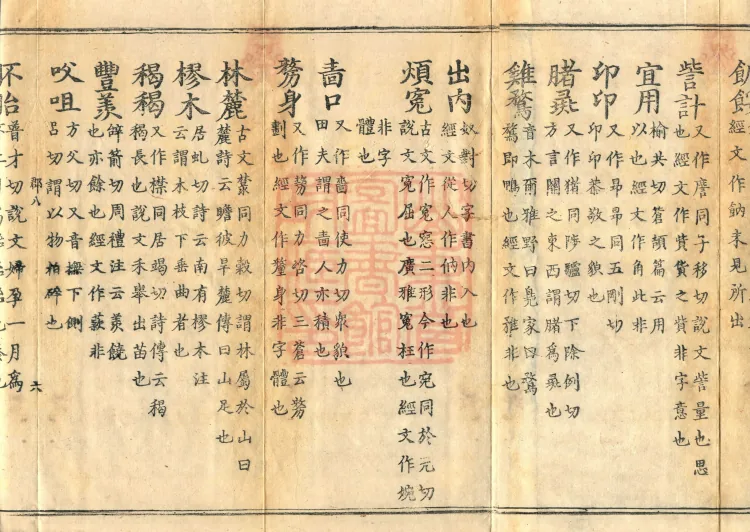 經文作鈉未見所出
訾計
又作䜅同子移切說文訾量也思
也經文作貲貨之貲非字意也
宜用
榆共切蒼頡篇云用
以也經文作角此非
卬卬
又作昂昂同五剛切
卬卬恭敬之貌也
䐗彘
又作猪同陟驢切下除例切
方言關之東西謂䐗為彘也
雞鶩
音木爾雅野曰鳧家曰鶩
鶩即鴨也經文作雅非也
出內
奴對切字書內入也
經文從人作伱非也
煩冤
古文作寃窓二形今作宛同於元切
說文冤屈也廣雅冤枉也經文作惋
非字
體也
嗇口
又作同使力切衆貌也
田夫謂之嗇人亦積也
剺身
又作剺同力咨切三蒼云剺
劃也經文作犛身非字體也
林麓
古文同力穀切謂林屬於山曰
麓詩云瞻彼旱麓傳曰山足也
樛木
居虬切詩云南有樛木注
云謂木枝下垂曲者也
稩稩
又作襟同居竭切詩傳云稩
稩長也說文禾舉出苗也
豐羨
辝箭切周禮注云羨饒
也亦餘也經文作𦾏非
㕮咀
方父切又音撫下側
呂切謂以物拍碎也
郡八 六
坏胎
普才切說文婦孕一月為